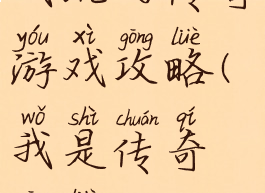 yóu xì gōng lüè
游戏攻略(
wǒ shì chuán qí
我是传奇